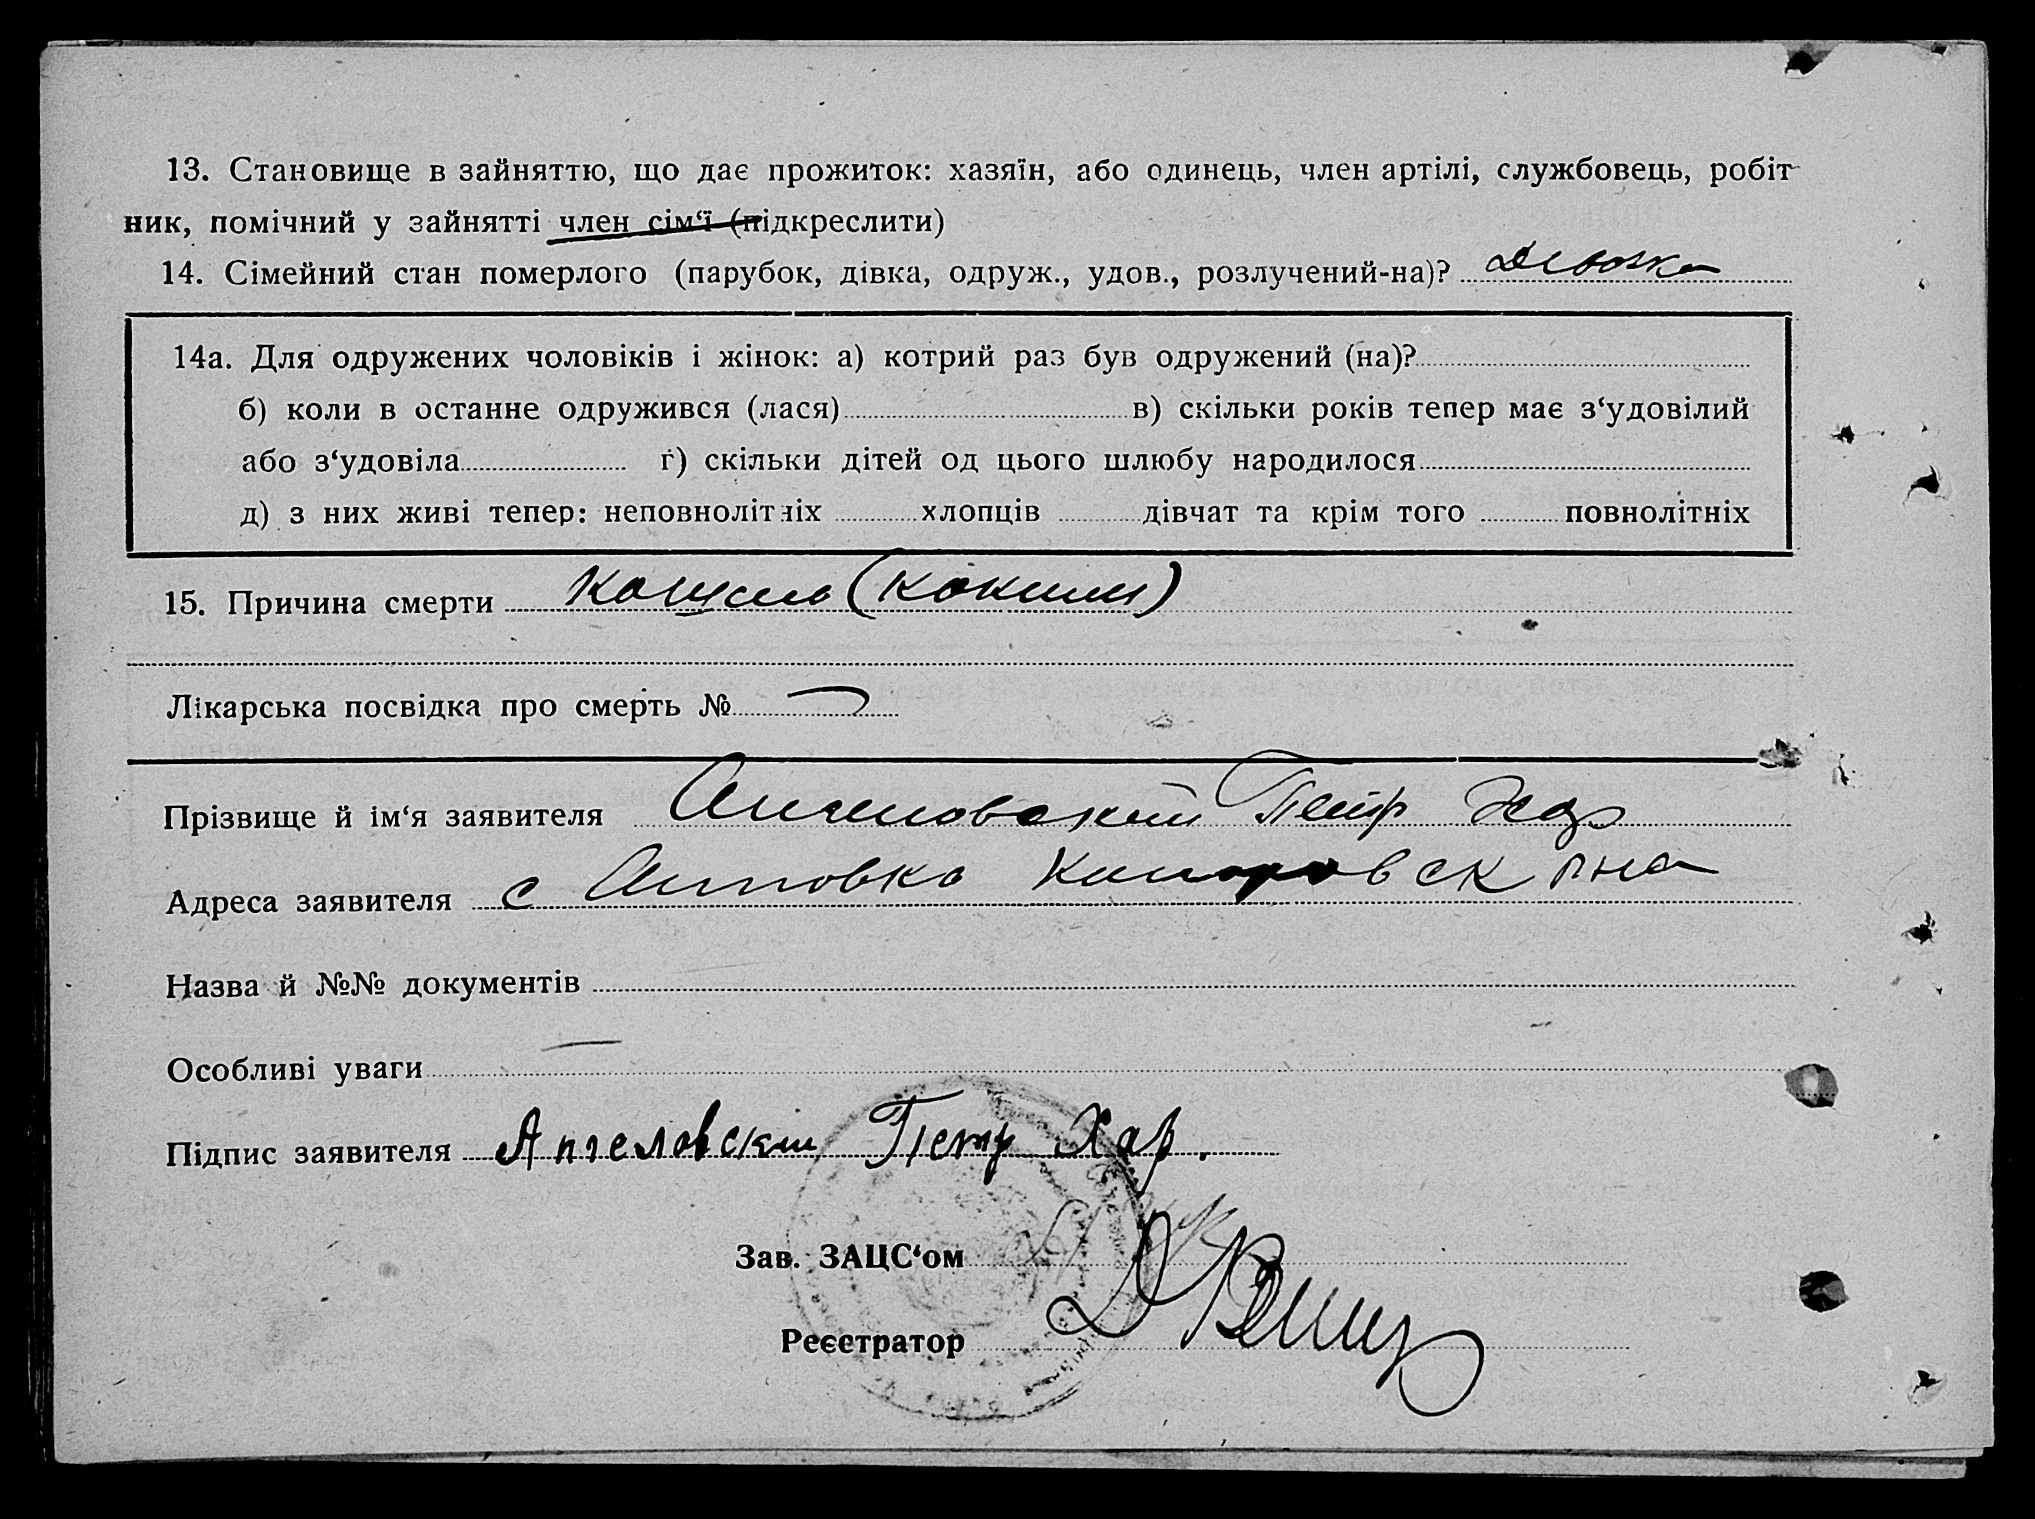 13. Становище в зайняттю, що дає прожиток: хазяїн, або одинець, член артілі, службовець, робіт-
ник, помічний у зайнятті член сім‘ї (підкреслити)
14. Сімейний стан померлого (парубок, дівка, одруж., удов., розлучений-на)?
14а. Для одружених чоловіків і жінок: а) котрий раз був одружений (на)?
б) коли в останне одружився (лася) в) скільки років тепер має з‘удовілий
або з‘удовіла ґ) скільки дітей од цього шлюбу народилося
д) з них живі тепер: неповнолітніх хлопців дівчат та крім того повнолітніх
15. Причина смерти кашель (коклюш)
Лікарська посвідка про смерть №
Прізвище й ім‘я заявителя Ангеловский Петр Хар
Адреса заявителя с
Назва й №№ документів
Особливі уваги
Підпис заявителя Ангеловский Петр Хар.
Зав. ЗАЦС‘ом
Реєстратор